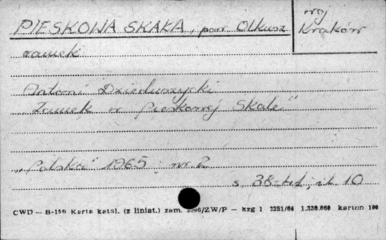 PIESKOWA SKAŁA, pow. Olkusz
woj Kraków
zamek
Antoni Dzieduszycki
"Zamek w Pieskowej Skale"
"Polska" 1965 nr. 2
s. 38-41, il. 10
CWD — B-156 Karta katal. (z liniat.) zam. /ZW/P — kzg 1 2251/64 1.230.000 karton 180